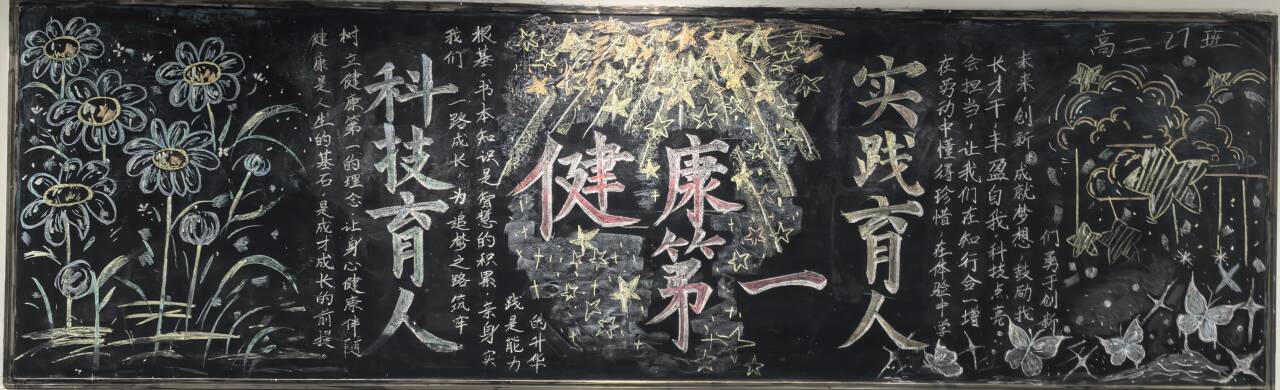 高二27班
健康是人生的基石,是成才成长的前提。
树立健康第一的理念,让身心健康伴随
科技育人
我们一路成长,为追梦之路筑牢
根基.书本知识是智慧的积累,亲身实
践是能力
的升华
健康
第一
实践育人
在劳动中懂得珍惜,在体验中学
会担当,让我们在知行合一增
长才干丰盈自我,科技点亮
未来,创新成就梦想,鼓励我
们勇于创新